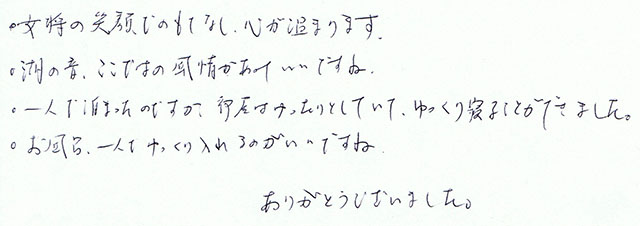 。女将の笑顔でのもてなし、心が温まります。
。湖の音、ここではの風情があっていいですね。
。一人で泊まったのですが、部屋はゆったりとしていて、ゆっくり寝ることができました。
。お風呂、一人でゆっくり入れるのがいいですね
ありがとうございました。